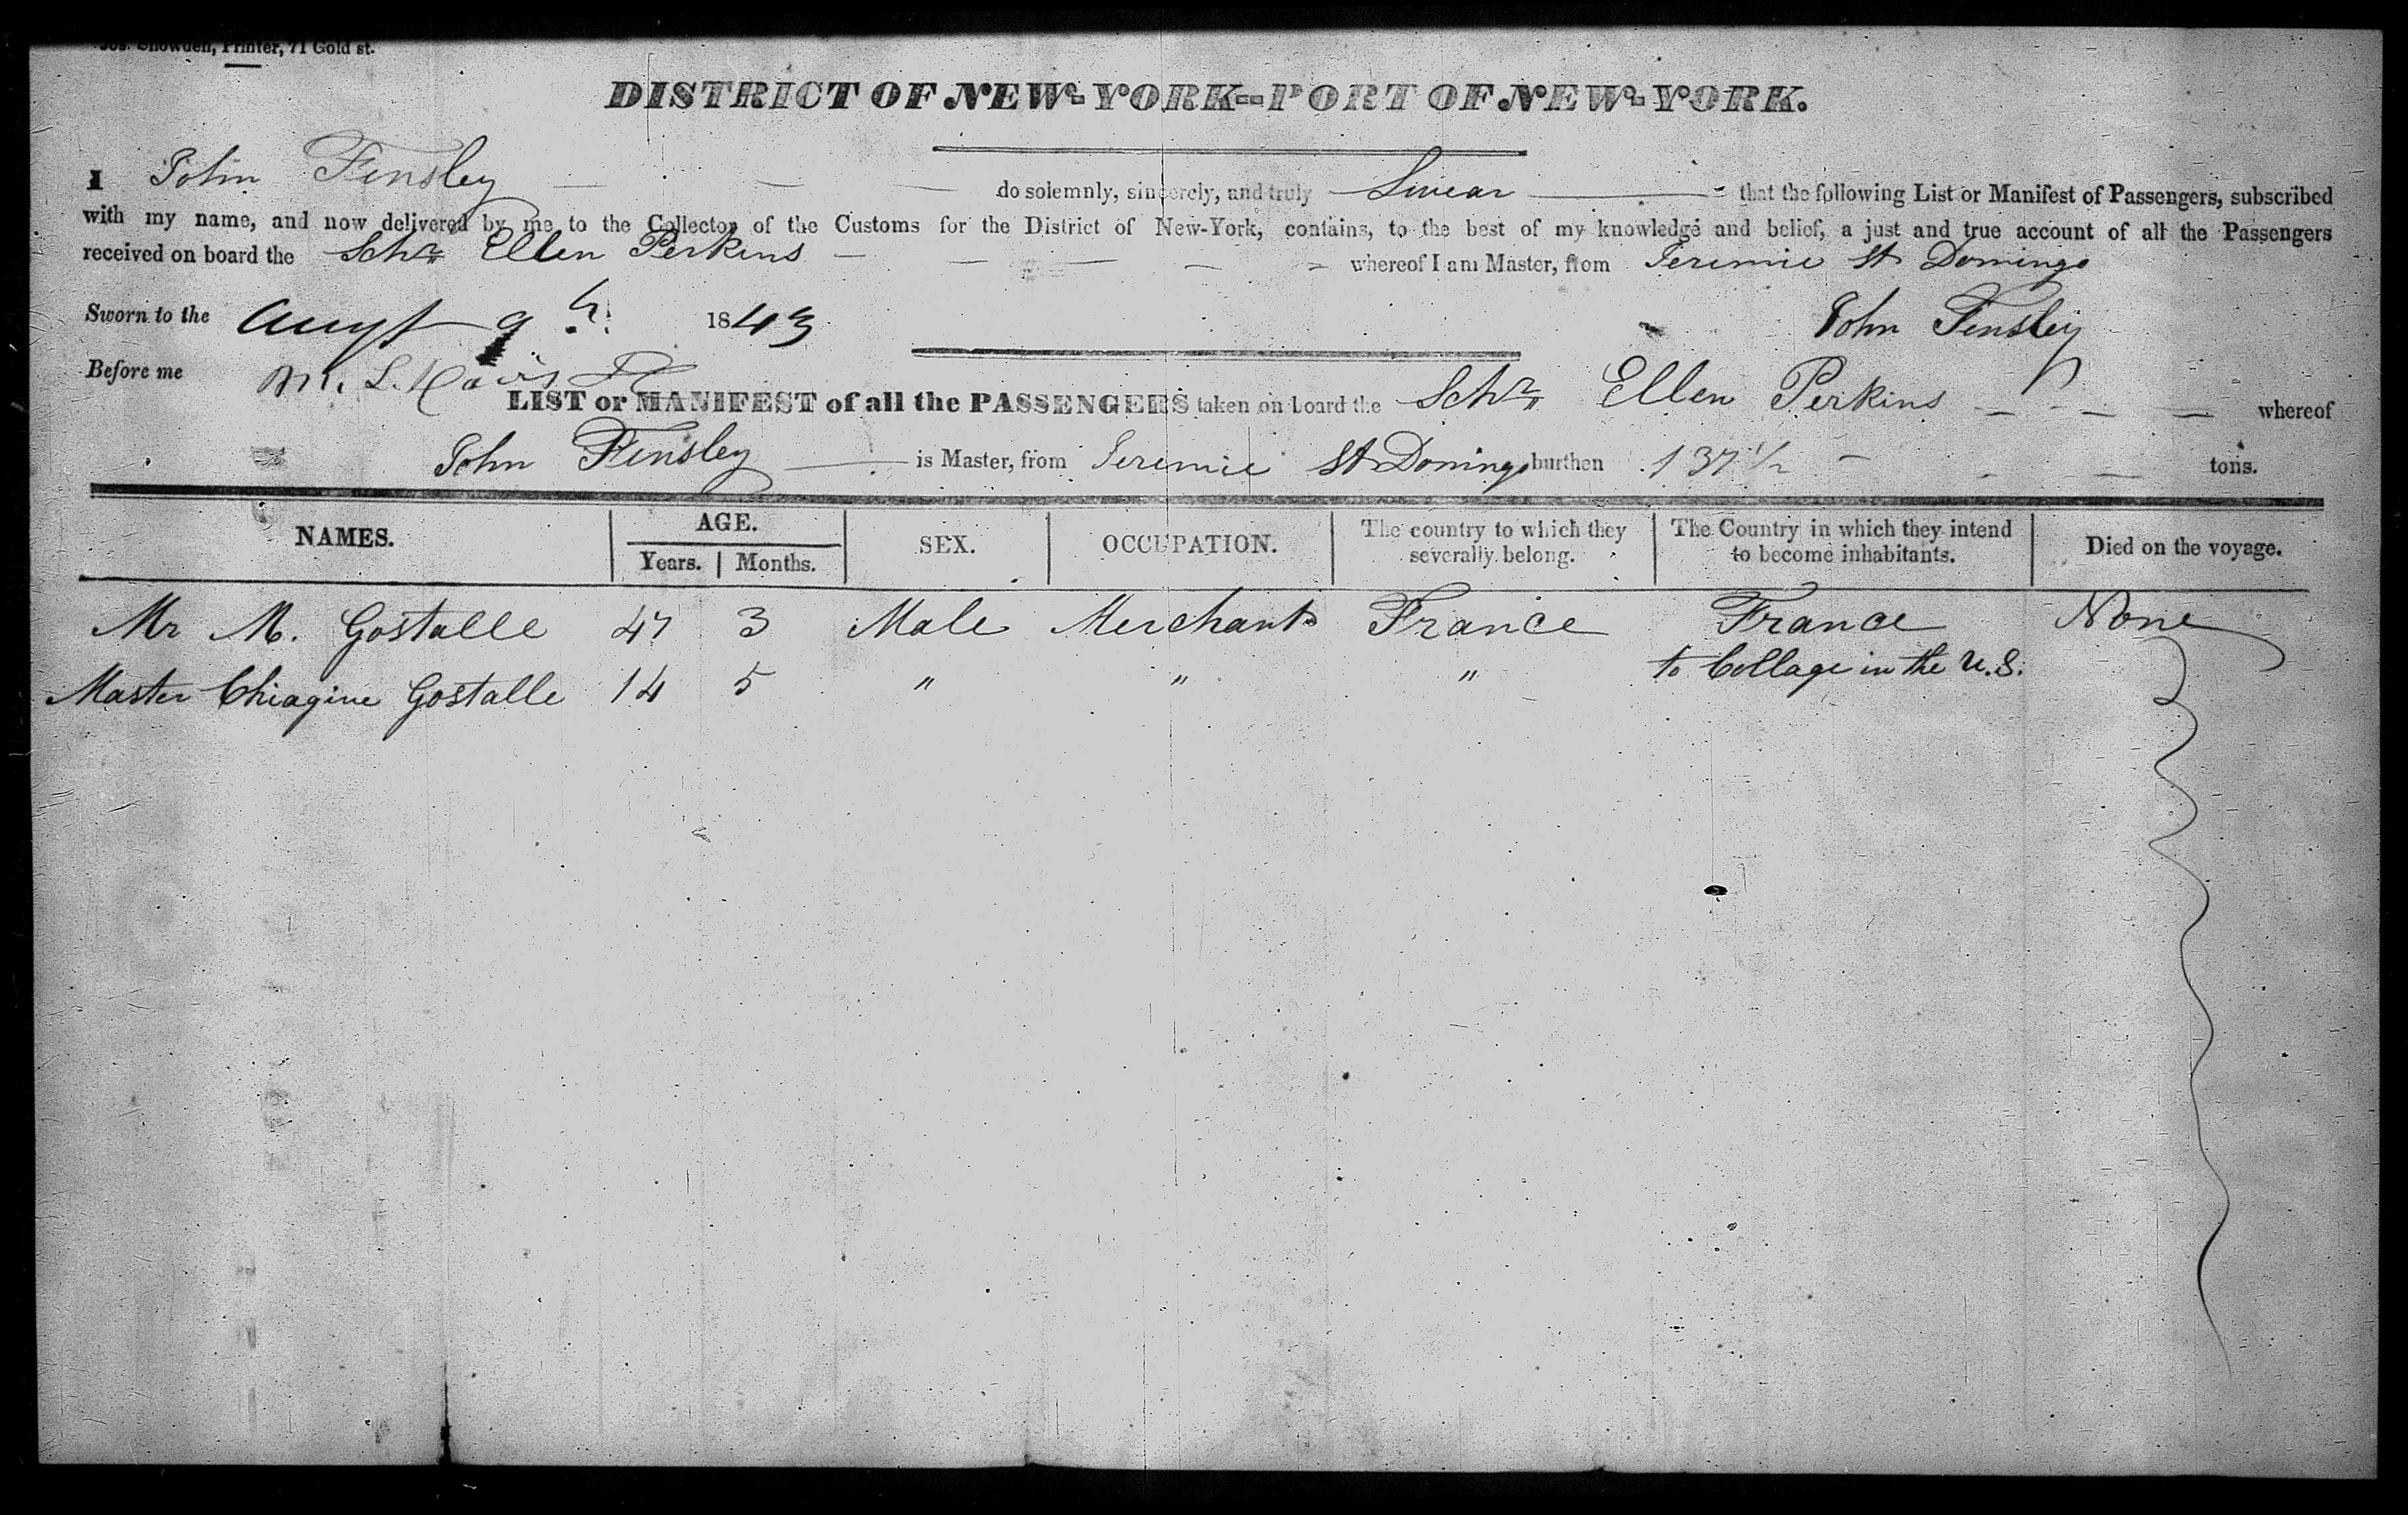 Jos. Snowden, Printer, 71 Gold st.
DISTRICT OF NEW-YORK--PORT OF NEW-YORK.
I John Tinsley do solemnly, sincerely, and truly Swear that the following List or Manifest of Passengers, subscribed
with my name, and now delivered by me to the Collector of the Customs for the District of New-York, contains, to the best of my knowledge and belief, a just and true account of all the Passengers
received on board the Schr Ellen Perkins whereof I am Master, from Jeremie St Domingo
Sworn to the Augt 9th 1843 John Tinsley
Before me M. L. Davis
LIST or MANIFEST of all the PASSENGERS taken on board the Schr Ellen Perkins whereof
John Tinsley is Master, from Jeremie St Domingo burthen 137 1/2 tons.
NAMES. AGE. Years. Months. SEX. OCCUPATION. The country to which they severally belong. The Country in which they intend to become inhabitants. Died on the voyage.
Mr M. Gostalle 47 3 Male Merchant France France None
Master Chiagine Gostalle 14 5 " " " to Collage in the U.S.